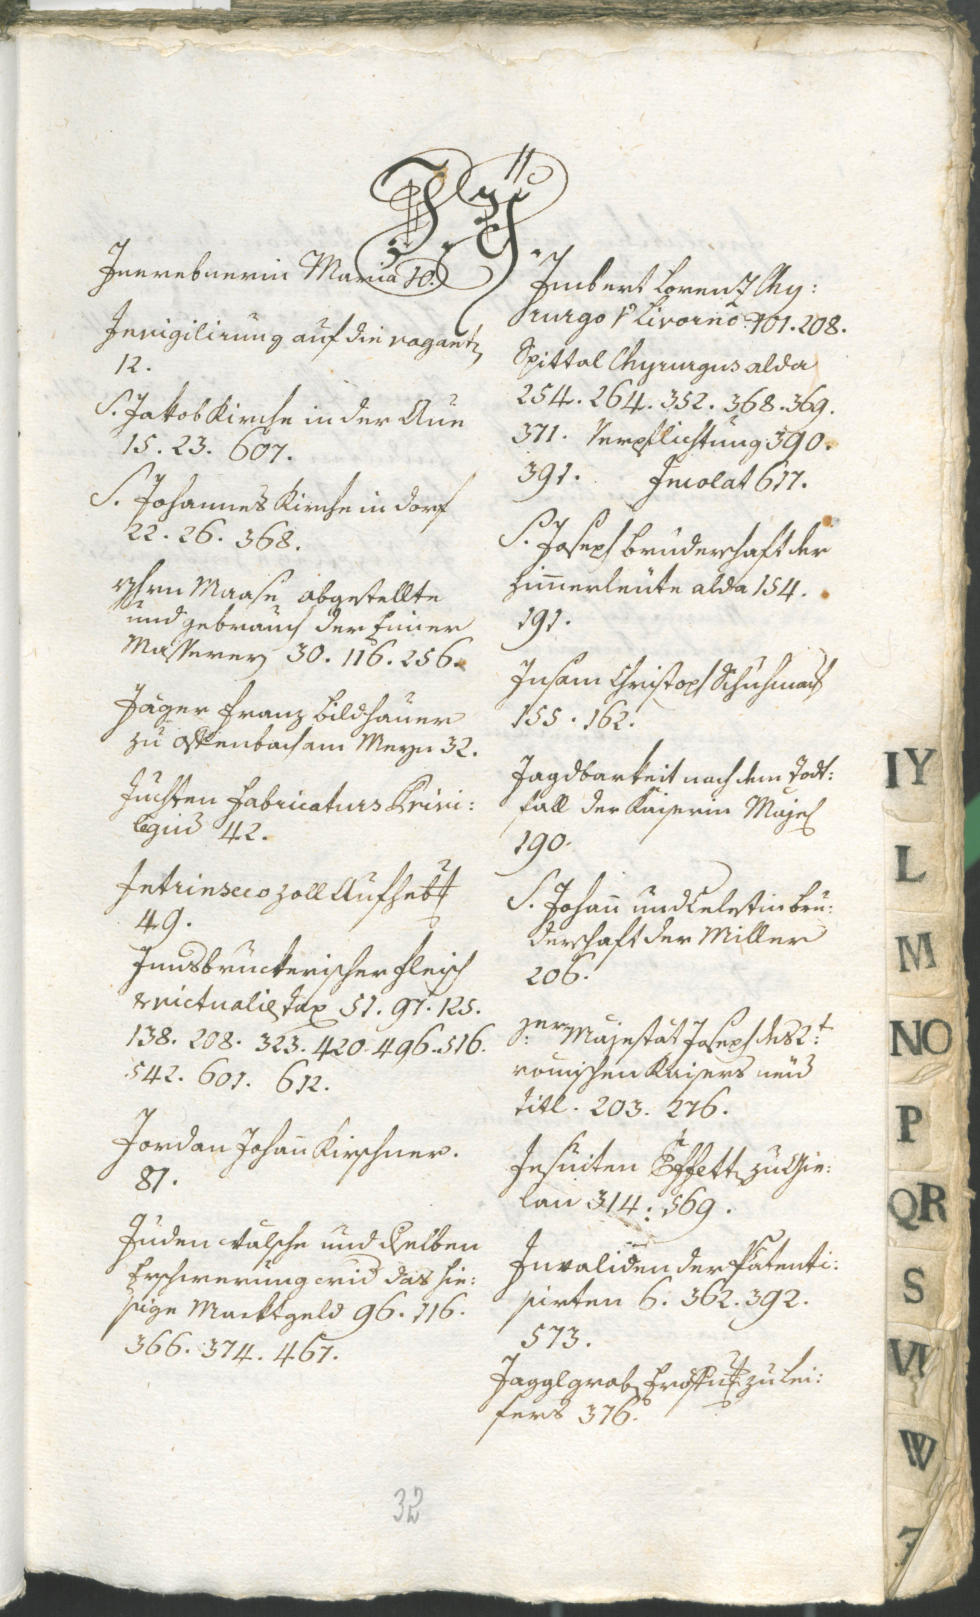 I. Y.
Innerebnerin Maria 10.
Invigilirung auf die vaganten
12.
S. Jakob Kirche in der Aue
15. 23. 607.
S. Johannes Kirche in Dorf
22. 26. 368.
Yhrn Maase abgestellte
und gebrauch der Eimer
Masserey 30. 116. 256.
Jäger Franz Bildhauer
zu Offenbach am Meyn 32.
Juchten Fabricaturs Privi:
legium 42.
Intrinseco Zoll Aufhebung
49.
Innsbruckerischer Fleisch
& victualien Tax 51. 97. 125.
138. 208. 323. 420. 496. 516.
542. 601. 612.
Jordan Johann Kirschner.
87.
Juden wälsche und derselben
Beschwerung wid das hie:
sige Marktgeld 96. 116.
366. 374. 467.
Imbert Lorenz Chy:
rurgo Livorno 101. 208.
Spittal Chyrurgus alda
254. 264. 352. 368. 369.
371. Verpflichtung 390.
391. Incolat 617.
S. Joseph Bruderschaft der
Zimmerleute alda 154.
191.
Insam Christoph Schuhmach
155. 162.
Jagdbarkeit nach dem Todt:
fall der Kaiserin Majest
190.
S. Johann und Celestin Bru:
derschaft der Miller
206.
Majestät Joseph des 2t
römischen Kaisers neue
titl. 203. 276.
Jesuiten Effetten zu Gie:
lan 314. 569.
Invaliden der Patenti:
sirten 6. 362. 392.
573.
Jagglgraben Eröffnung zu Lei:
fers 376.
32
IY
L
M
NO
P
QR
S
W